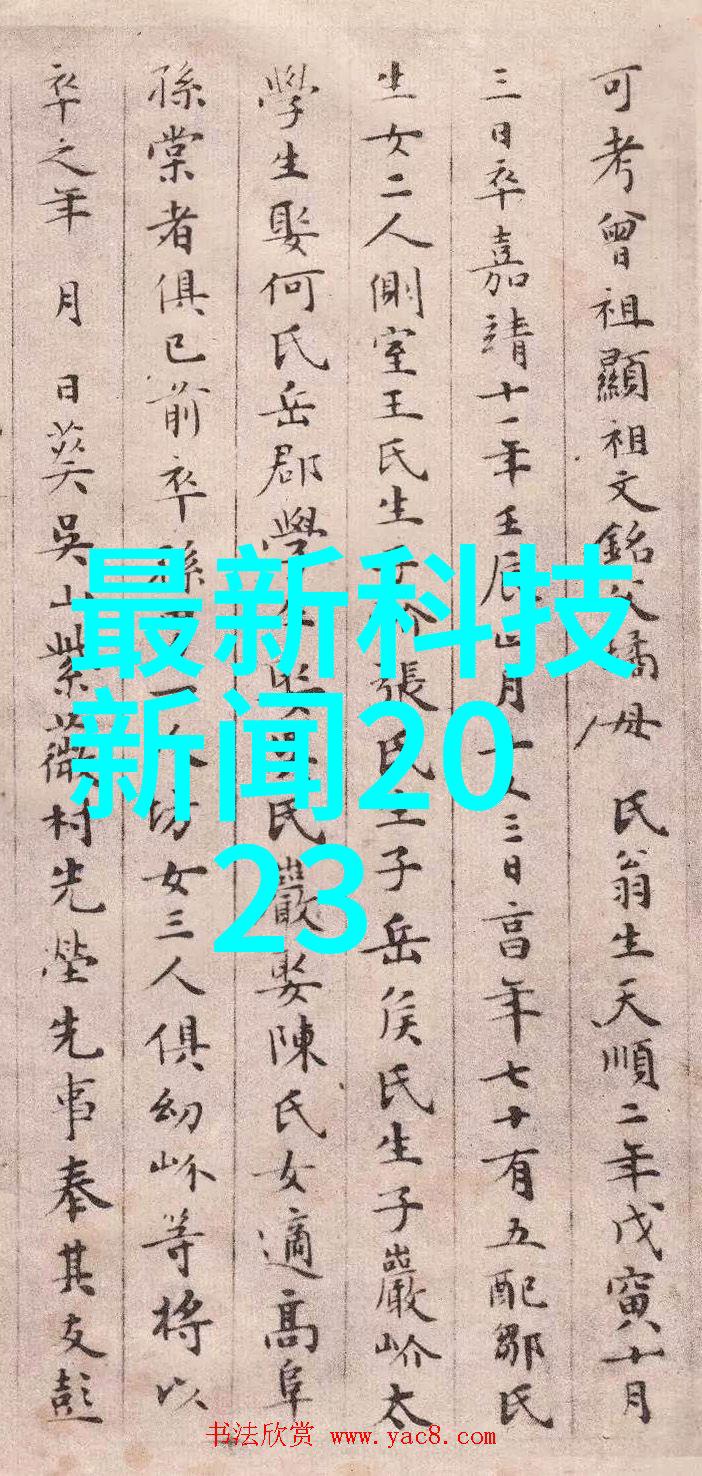 可考曾祖顯祖文銘父璚母 氏翁生天順二年戊寅十月
三日卒嘉靖十一年壬辰正月十又三日高年七十有五配鄒氏
生女二人側室王氏生子 張氏生子岳侯氏生子巖岕太
學生娶何氏岳郡學 氏巖娶陳氏女適高阜
孫棠者俱已前卒孫 坊女三人俱幼岕等将以
卒之年 月 日葬吳山紫薇村先塋先事奉其友彭
最新科技
新闻20
23
书法欣赏 www.yac8.com